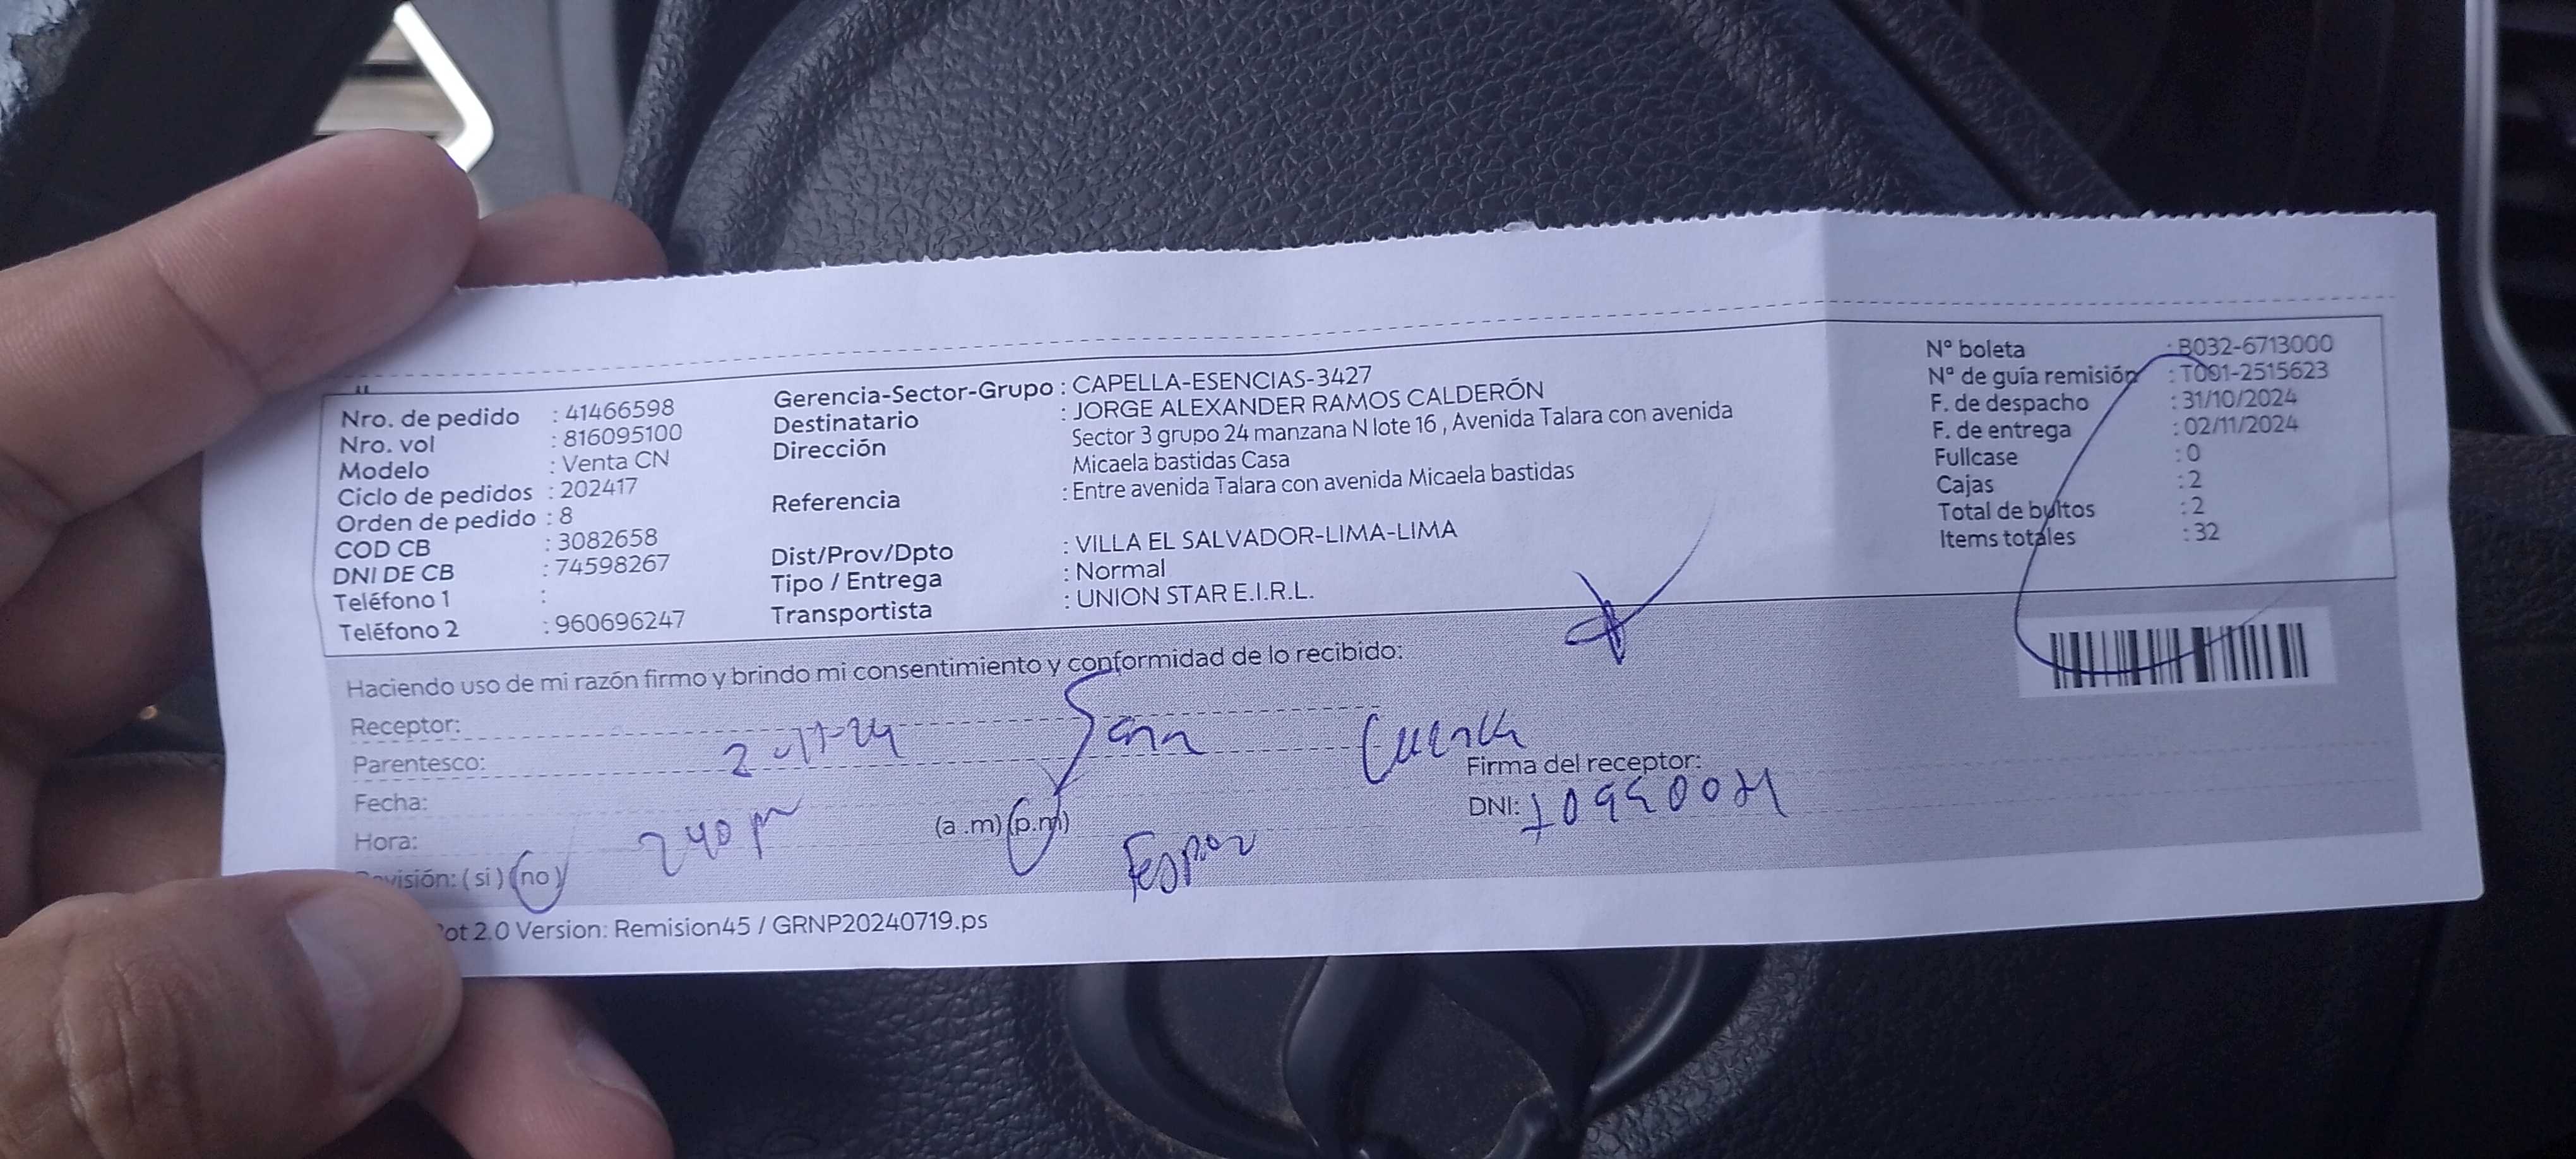 Nro. de pedido : 41466598
Nro. vol : 816095100
Modelo : Venta CN
Ciclo de pedidos : 202417
Orden de pedido : 8
COD CB : 3082658
DNI DE CB : 74598267
Teléfono 1 :
Teléfono 2 : 960696247
Gerencia-Sector-Grupo : CAPELLA-ESENCIAS-3427
Destinatario : JORGE ALEXANDER RAMOS CALDERÓN
Dirección Sector 3 grupo 24 manzana N lote 16 , Avenida Talara con avenida
Micaela bastidas Casa
Referencia : Entre avenida Talara con avenida Micaela bastidas
Dist/Prov/Dpto : VILLA EL SALVADOR-LIMA-LIMA
Tipo / Entrega : Normal
Transportista : UNION STAR E.I.R.L.
N° boleta : B032-6713000
N° de guía remisión : T001-2515623
F. de despacho : 31/10/2024
F. de entrega : 02/11/2024
Fullcase : 0
Cajas : 2
Total de bultos : 2
Items totales : 32
Haciendo uso de mi razón firmo y brindo mi consentimiento y conformidad de lo recibido:
Receptor:
Parentesco: 2-11-24
Fecha:
Hora: 240 pm (a .m) (p.m)
Revisión: ( si ) (no)
Firma del receptor:
DNI:
ot 2.0 Version: Remision45 / GRNP20240719.ps